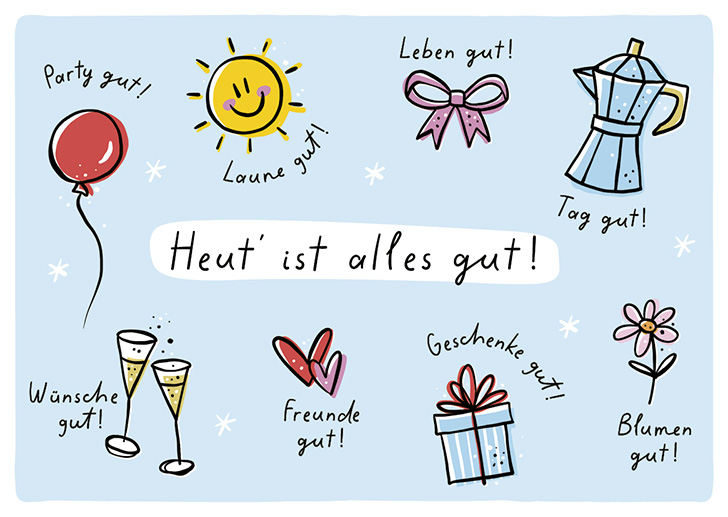 Party gut!
Laune gut!
Leben gut!
Tag gut!
Heut' ist alles gut!
Wünsche
gut!
Freunde
gut!
Geschenke gut!
Blumen
gut!